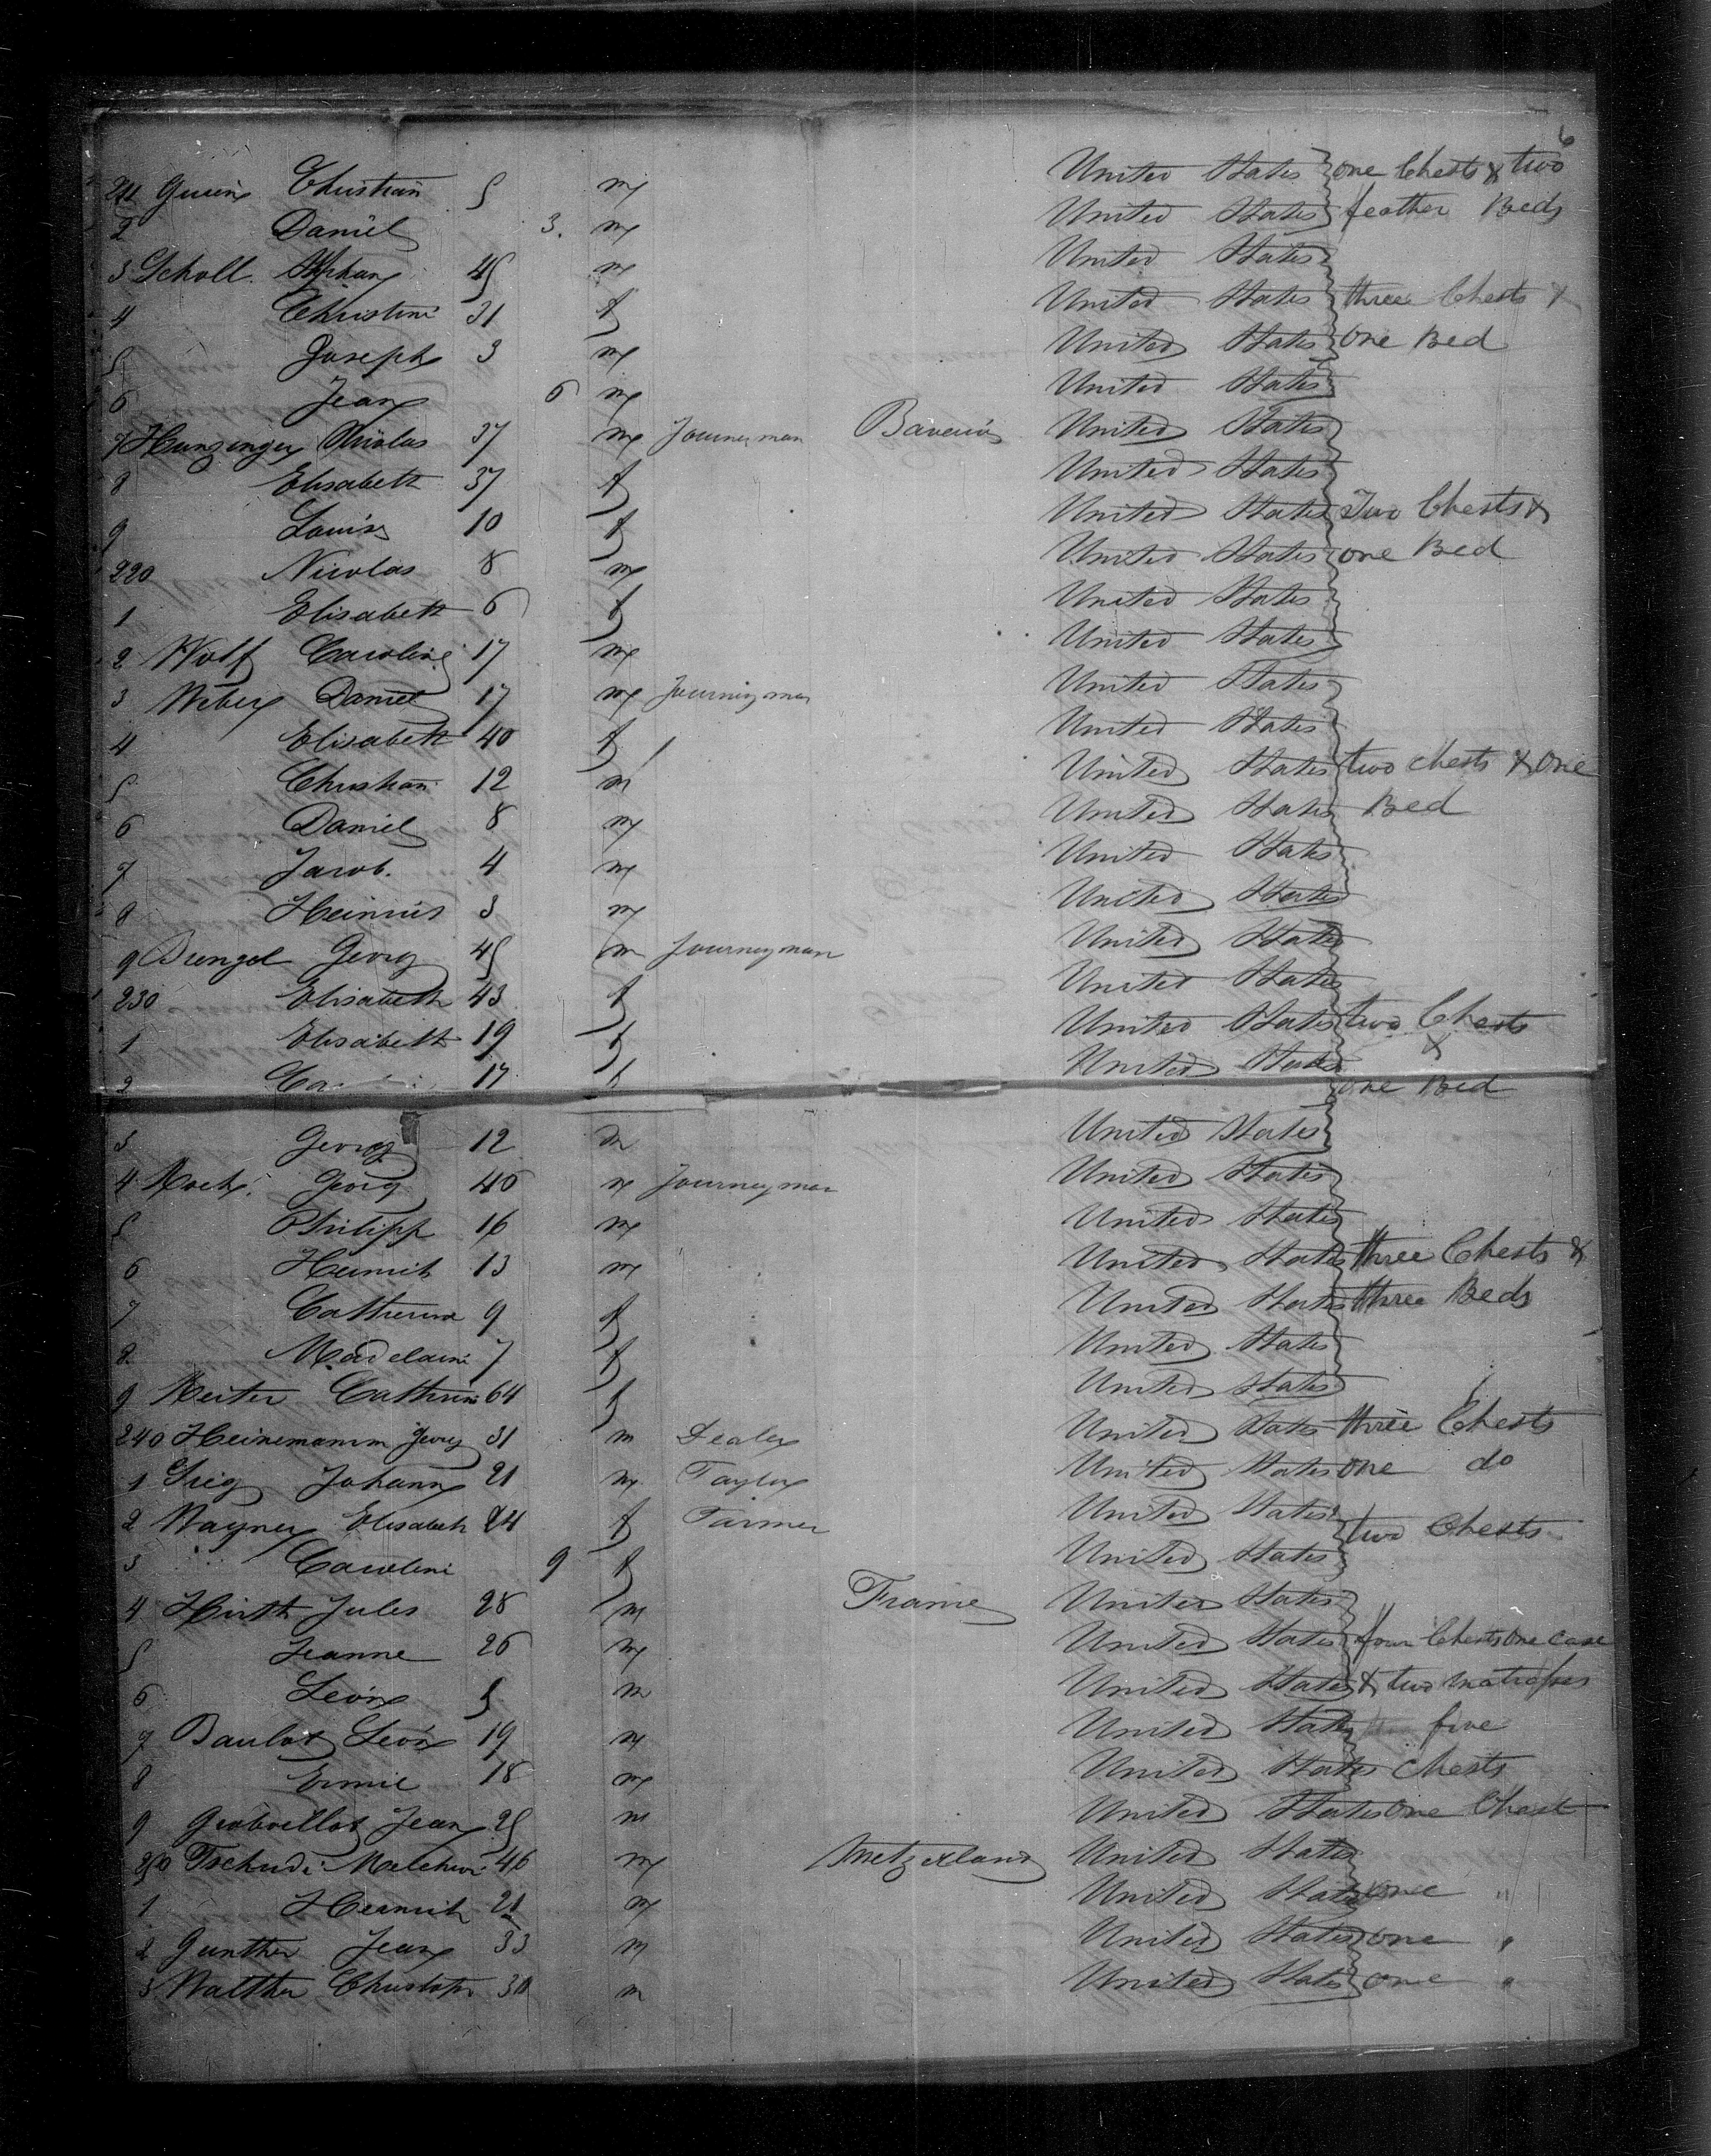 6
211 Christian 5 m United States one Chests & two
2 Daniel 3. m United States feather Beds
3 Scholl Stephan 45 m United States
4 Christine 31 f United States three Chests &
5 Joseph 3 m United States one Bed
6 Jean 6 m United States
7 Hunzinger Nicolas 37 m Journeyman Bavaria United States
8 Elisabeth 37 f United States
9 Louise 10 f United States Two Chests &
220 Nicolas 8 m United States one Bed
1 Elisabeth 6 f United States
2 Wolf Caroline 17 m United States
3 Weber Daniel 17 m Journeyman United States
4 Elisabeth 40 f United States
5 Christian 12 m United States two chests & one
6 Daniel 8 m United States Bed
7 Jacob. 4 m United States
8 Heinrich 3 m United States
9 Georg 45 m Journeyman United States
230 Elisabeth 43 f United States
1 Elisabeth 19 f United States two Chests
2 17 f United States &
one Bed
3 Georg 12 m United States
4 Georg 40 m Journeyman United States
5 Philipp 16 m United States
6 Heinrich 13 m United States three Chests &
7 Catherine 9 f United States three Beds
8 Madelaine 7 f United States
9 Reiter Catherine 64 f United States
240 Heinemann Georg 31 m Dealer United States three Chests
1 Johann 21 m Taylor United States one do
2 Wagner Elisabeth 24 f Farmer United States two Chests
3 Caroline 9 f United States
4 Hirth Jules 28 m France United States
5 Jeanne 26 m United States four Chests one case
6 Léon 5 m United States & two matrasses
7 Baulot Léon 19 m United States five
8 Ermil 18 m United States Chests
9 Jean 25 m United States one Chest
250 Tschudi Melchior 46 m Swetzerland United States
1 Heinrich 21 m United States one "
2 Gunther Jean 33 m United States one "
3 Walther Christoph 30 m United States one "